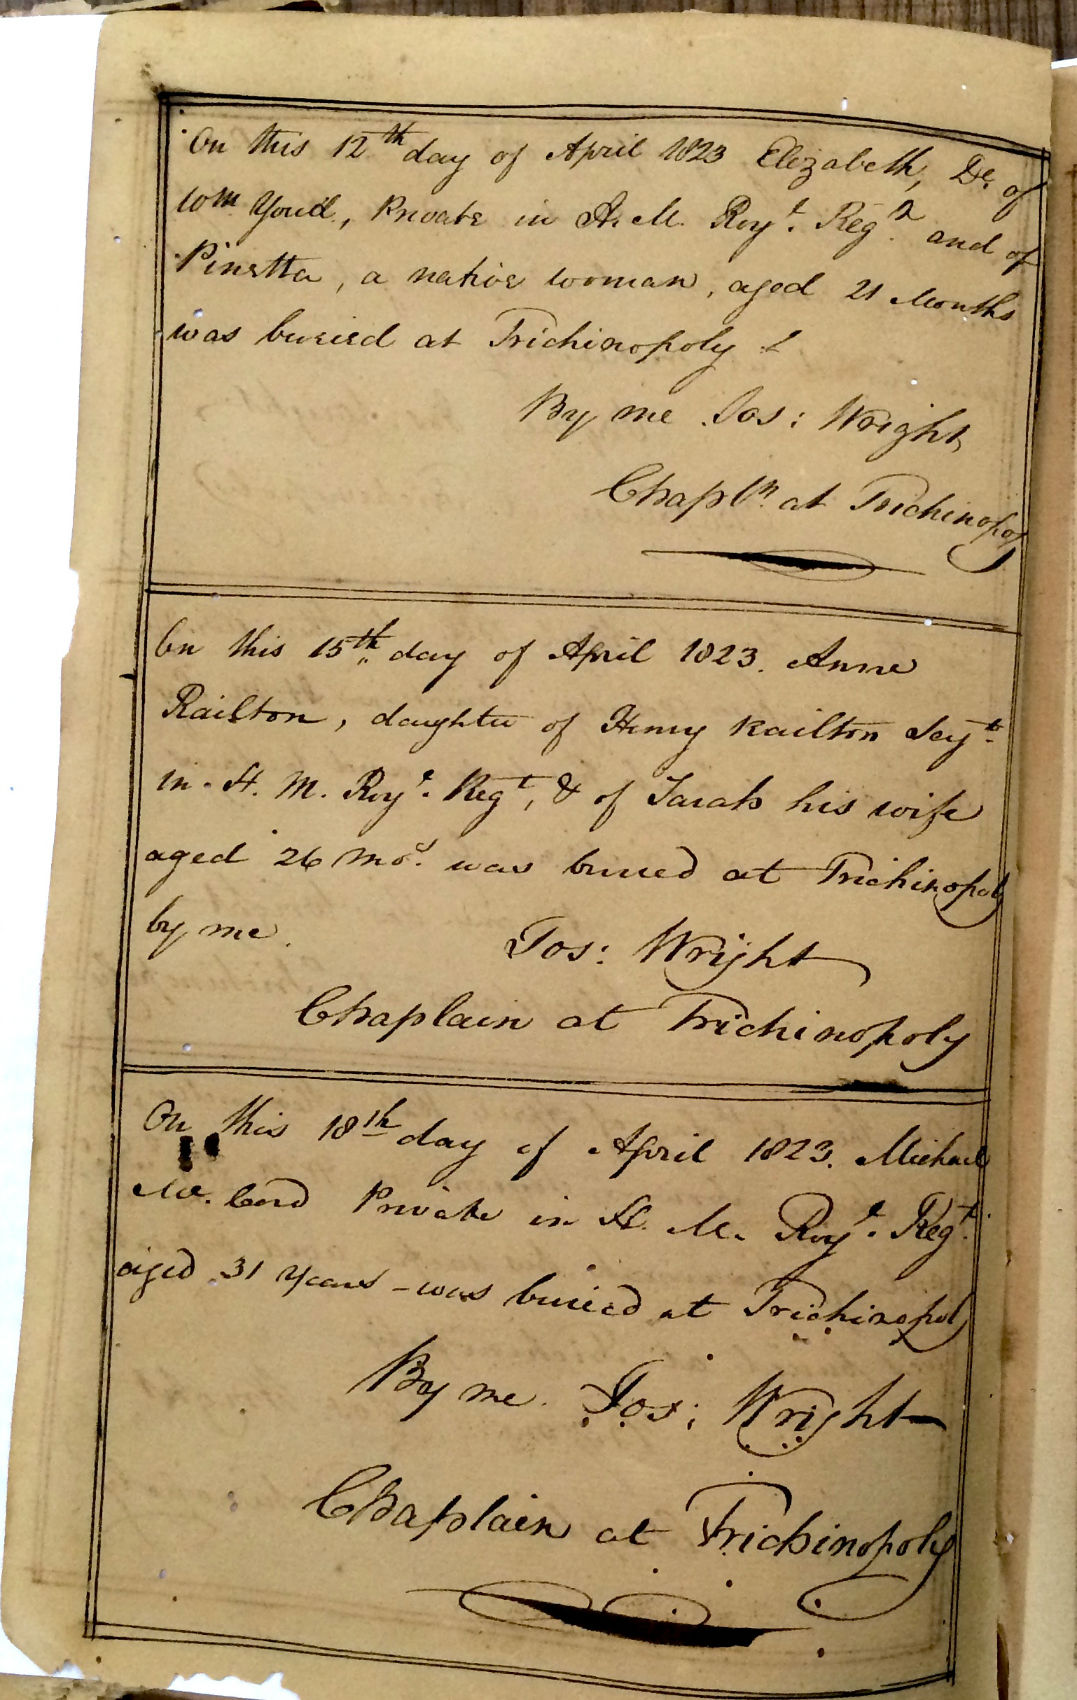 On this 12th day of April 1823 Elizabeth, Dr. of
Wm. Youd, Private in H. M. Royl. Regt. and of
Pinetta, a native woman, aged 21 Months
was buried at Trichinopoly
By me Jos: Wright
Chapln. at Trichinopoly
On this 15th day of April 1823. Anne
Railton, daughter of Henry Railton Serjt.
in H. M. Royl. Regt, & of Sarah his wife
aged 26 mos. was buried at Trichinopoly
by me.
Jos: Wright
Chaplain at Trichinopoly
On this 18th day of April 1823. Michael
Mc. Cord Private in H. M. Royl. Regt.
aged 31 years - was buried at Trichinopoly
By me. Jos: Wright
Chaplain at Trichinopoly